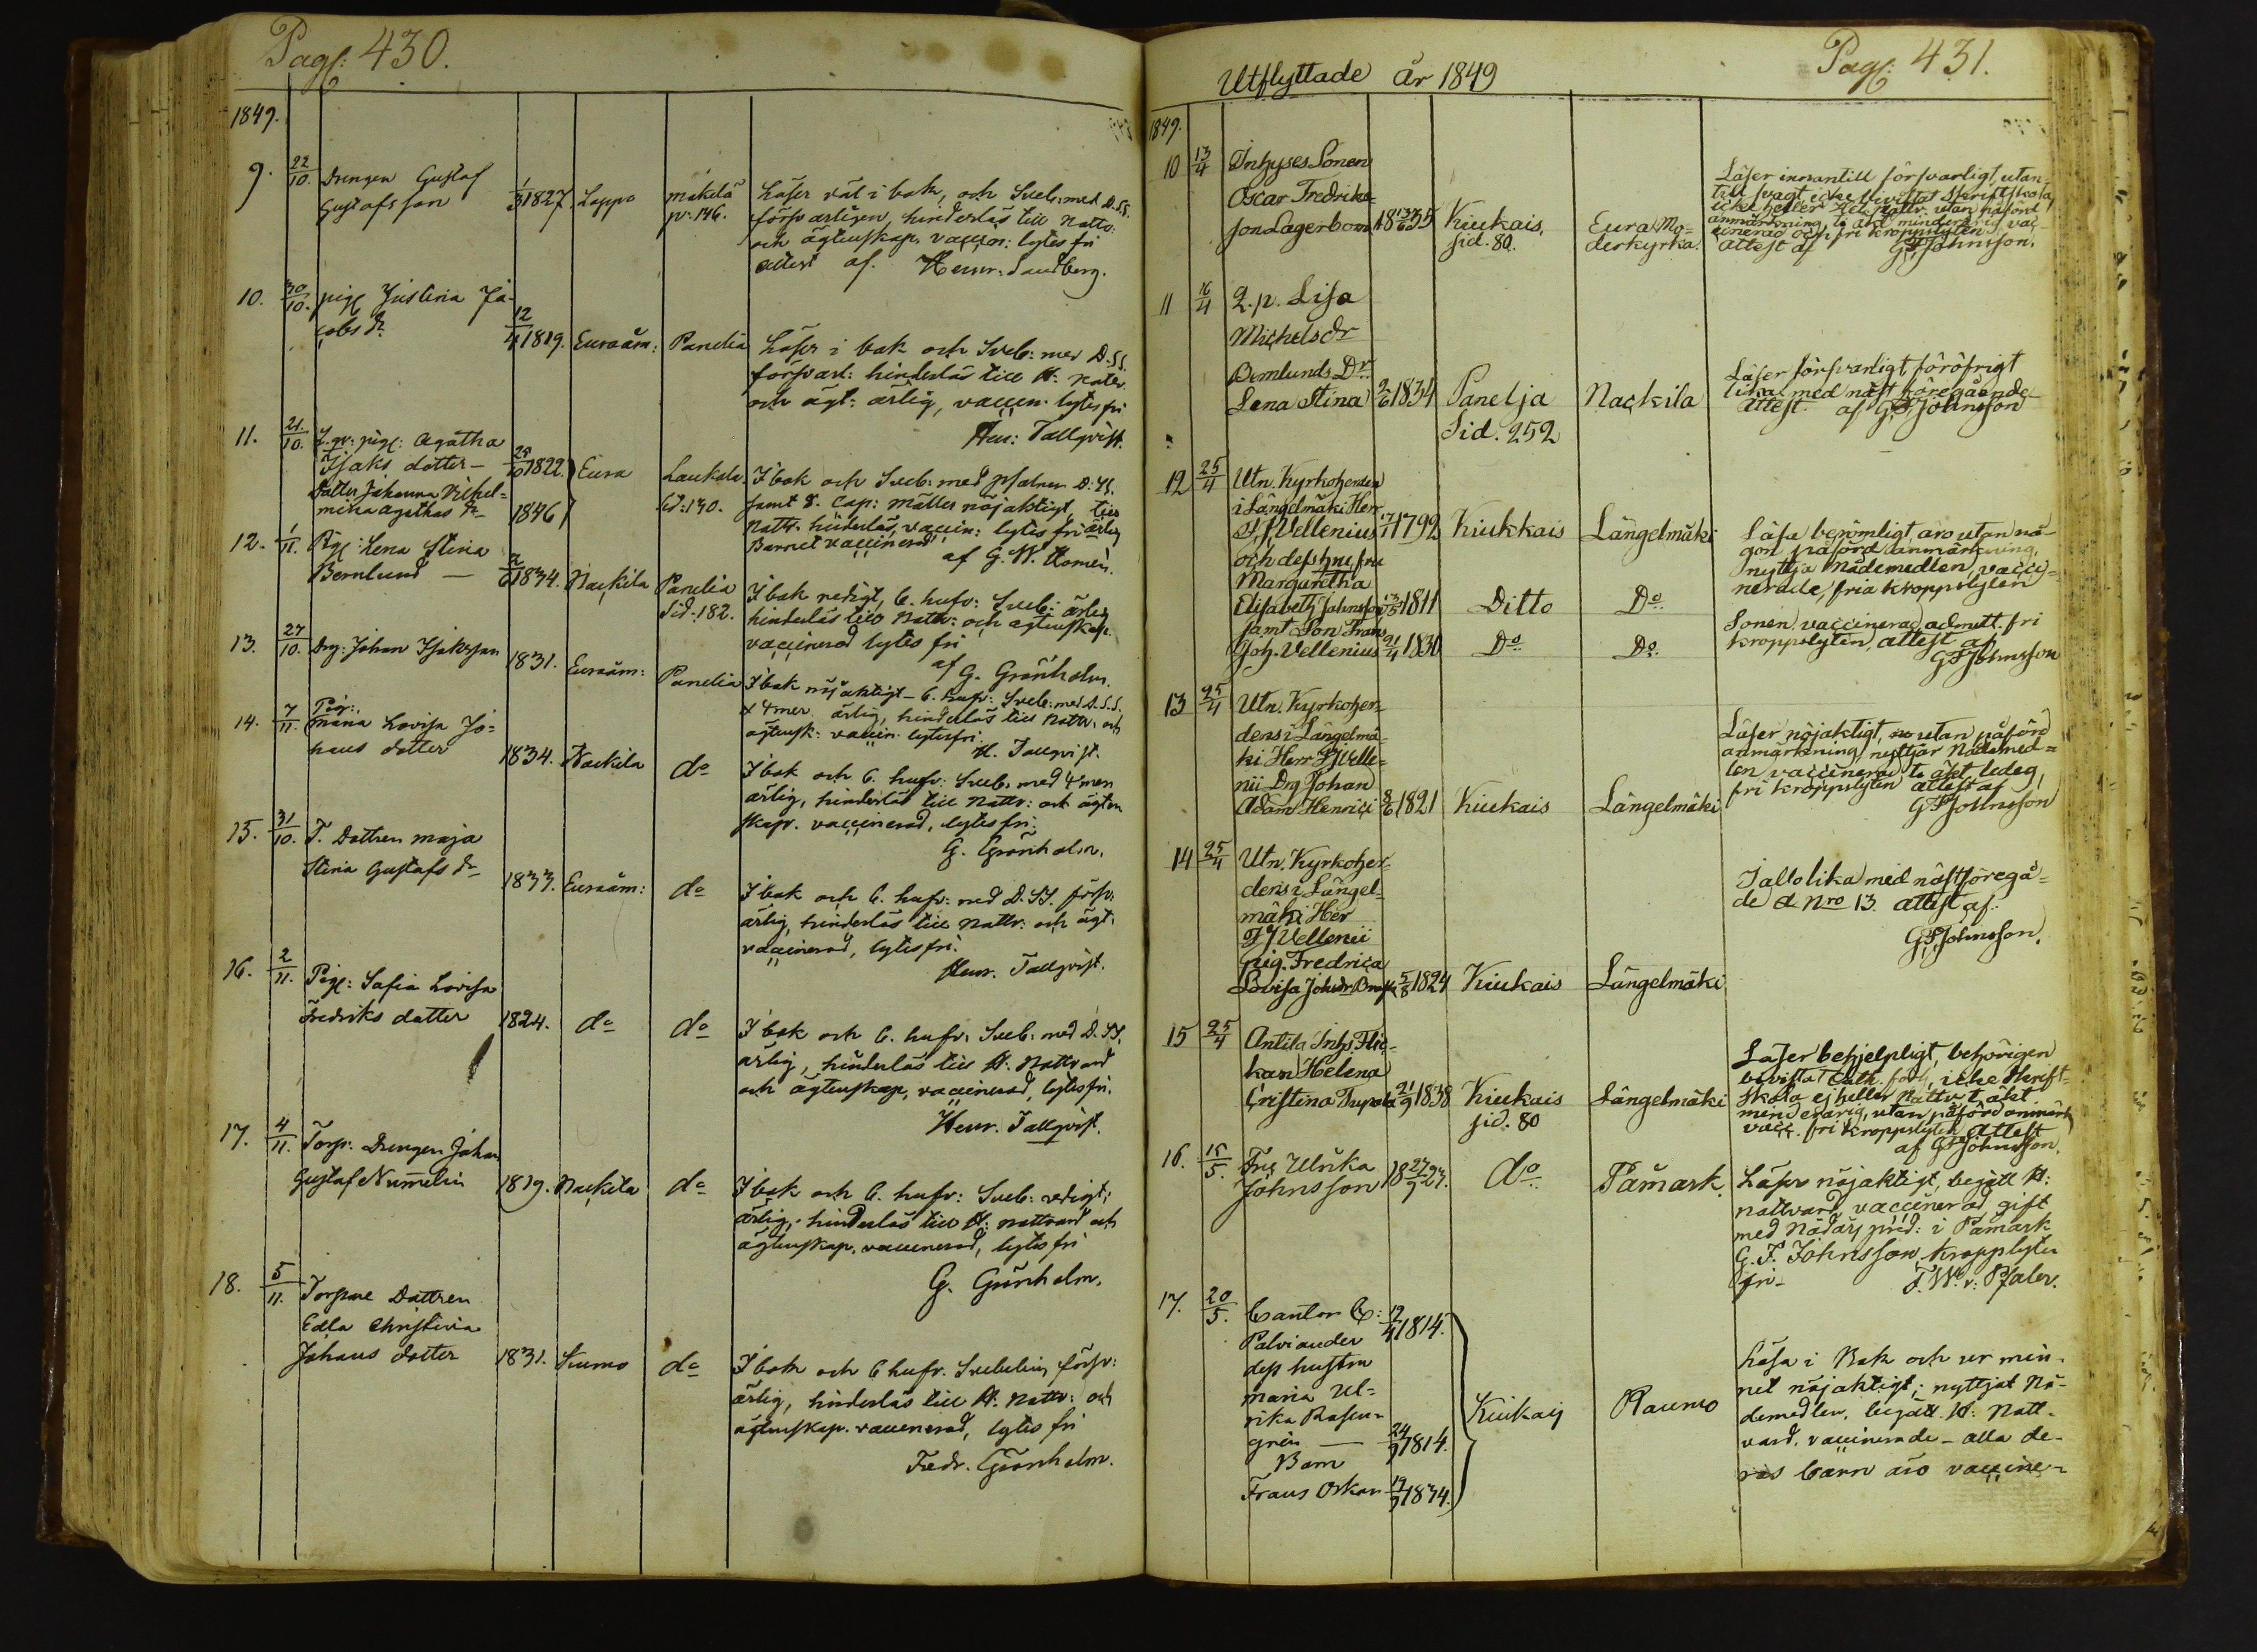 Pag: 430.
1849.
9. 22/10. Drengen Gustaf
Gustafsson 1/3 1827. Lappo Mäkelä
p: 146.
Läser väl i bok, och Sveb: med D. SS.
försvarligen, hinderlös till Nattv:
och ägtenskap. vaccin: lytes fri
attest af. Henr: Sandberg.
10. 30/10. pig. Justina Ja-
cobs dr 12/4 1819. Euraåm: Panelia
Läser i bok och Sveb: med D. SS.
försvarl: hinderlös till H: Nattv:
och ägt: ärlig, vaccin. lytes fri
Hen: Tallqvist.
11. 21/10. pig: Agatha
Isaks dotter — 25/10 1822 Eura Laukola.
Dotter Johanna Vilhel-
mina Agathas dr 1846
Sid: 190.
I bok och Sveb: med psalmer D: SS.
samt S. Cap: Mattei nöjaktigt, till
Nattv. hinderlös, vaccin: lytes fri ärlig
Barnet vaccinerad
af G. W. Homén.
12. 1/11. Pig: Lena Stina
Bernlund — 2/6 1834. Nackila Panelia
Sid: 182.
I bok redigt, C. hufv: Sveb: ärlig
hinderlös till Nattv: och ägtenskap.
vaccinerad lytes fri
af G. Grönholm.
13. 27/10. Drg: Johan Isaksson
1831. Euraåm: Panelia
I bok nöjaktigt – C. hufv: Sveb: med D. S. S.
& 4mer ärlig, hinderlös till Nattv: och
ägtensk: vaccin. lytesfri.
H. Tallqvist.
14. 7/11. Pig:
Maria Lovisa Jo-
hans dotter 1834. Nackila do
I bok och C. hufv: Sveb: med 4 men
ärlig, hinderlös till Nattv: och ägten
skap. vaccinerad, lytes fri.
G. Grönholm.
15. 31/10. T. Dottren Maja
Stina Gustafs dr 1833. Euraåm: do
I bok och C. hufv: med D. SS. försv:
ärlig, hinderlös till Nattv: och ägt.
vaccinerad, lytes fri.
Henr. Tallqvist.
16. 2/11. Pig: Safia Lovisa
Fredriks dotter 1824. do do
I bok och C. hufv: Sveb: med D. SS.
ärlig, hinderlös till H. Nattvard
och ägtenskap, vaccinerad, lytes fri.
Henr. Tallqvist.
17. 4/11. Torp: Drengen Johan
Gustaf Numelin 1819. Nackila do
I bok och C. hufv: Sveb: redigt;
ärlig, hinderlös till H: nattvard och
ägtenskap. vaccinerad, lytes fri
G. Grönholm.
18. 5/11. Torpare Dottren
Edla Christina
Johans dotter 1831. Kumo do
I bok och C hufv. Svebelius försv:
ärlig, hinderlös till H. Nattv: och
ägtenskap. vaccinerad, lytes fri
Fredr. Grönholm.
Utflyttade år 1849
Pag: 431.
1849.
10 13/4 Inhyses Sonen
Oscar Fredriks-
son Lagerbom 1835 Kiukais,
sid. 80.
Eura Mo-
derkyrka.
Läser innantill försvarligt, utan-
till svagt, icke bivistat Skriftskola,
icke heller H. Nattv. utan påförd
anmärkning to äkt minderårig vac-
cinerad och fri kroppslyten
attest af GF Johnsson.
11 16/4 Q. p. Lisa
Michelsdr
Bernlunds Dr
Lena Stina 2/6 1834 Panelja
Sid. 252
Nackila
Läser försvarligt, föröfrigt
lika med näst föregående
attest af GF Johnsson
12 25/4 Utn. Kyrkoherden
i Längelmäki Herr
F. J. Vellenius 17/7 1792 Kiukkais Längelmäki
och dess hu fru
Margaretha
Elisabeth Johnsson 1811 Ditto Do
samt Son Frans
Joh. Vellenius 21/4 1830 Do Do
Läsa berömligt äro utan nå-
gon påförd anmärkning,
nyttja Nådemedlen, vacci-
nerade, fria kroppslyten
Sonen vaccinerad, admitt. fri
kroppslyten, attest af
GF Johnsson
13 25/4 Utn. Kyrkoher-
dens i Längelmä-
ki Herr FJ Velle-
nii Drg Johan
Adam Henrici 8/6 1821 Kiukais Längelmäki
Läser nöjaktigt, utan påförd
anmärkning nyttjar Nådemed-
len vaccinerad to äkt. ledig,
fri kroppslyten attest af
GF Johnsson
14 25/4 Utn. Kyrkoher-
dens i Längel-
mäki Herr
FJ Vellenii
pig. Fredrica
Lovisa Johsdr 5/8 1824 Kiukais Längelmäki
I allo lika med nästföregå-
de Nro 13. attest af:
GF Johnsson.
15 25/4 Antila Inhs Flic-
kan Helena
Cristina Trepola 21/9 1838 Kiukais
sid. 80
Längelmäki
Läser behjelpligt, behörigen
bivistat Cath. förh, icke Skrift-
skola ej heller Nattv. t. äkt
minderårig, utan påförd anmärk
vacc. fri kroppslyten attest
af GF Johnsson.
16. 15/5. Fru Ulrika
Johnsson 18 27/9 27. do Påmark.
Läser nöjaktigt, begått H:
nattvard, vaccinerad gift
med Nådårs prd: i Påmark
G. F. Johnsson kroppslyten
fri – F. W. v. Pfaler.
17. 20/5. Cantor C: 12/4 1814.
Palviander
dess hustru
Maria Ul-
rika Rosen-
grén — 24/9 1814.
Barn
Frans Oskar 19/9 1834.
Kiukais Raumo
Läsa i Bok och ur min-
net nöjaktigt; nyttjat Nå-
demedlen, begått H: Natt-
vard, vaccinerade – alla de-
ras barn äro vaccine-